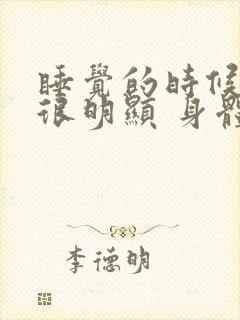 睡覺的時候
很明顯 身體
李德明